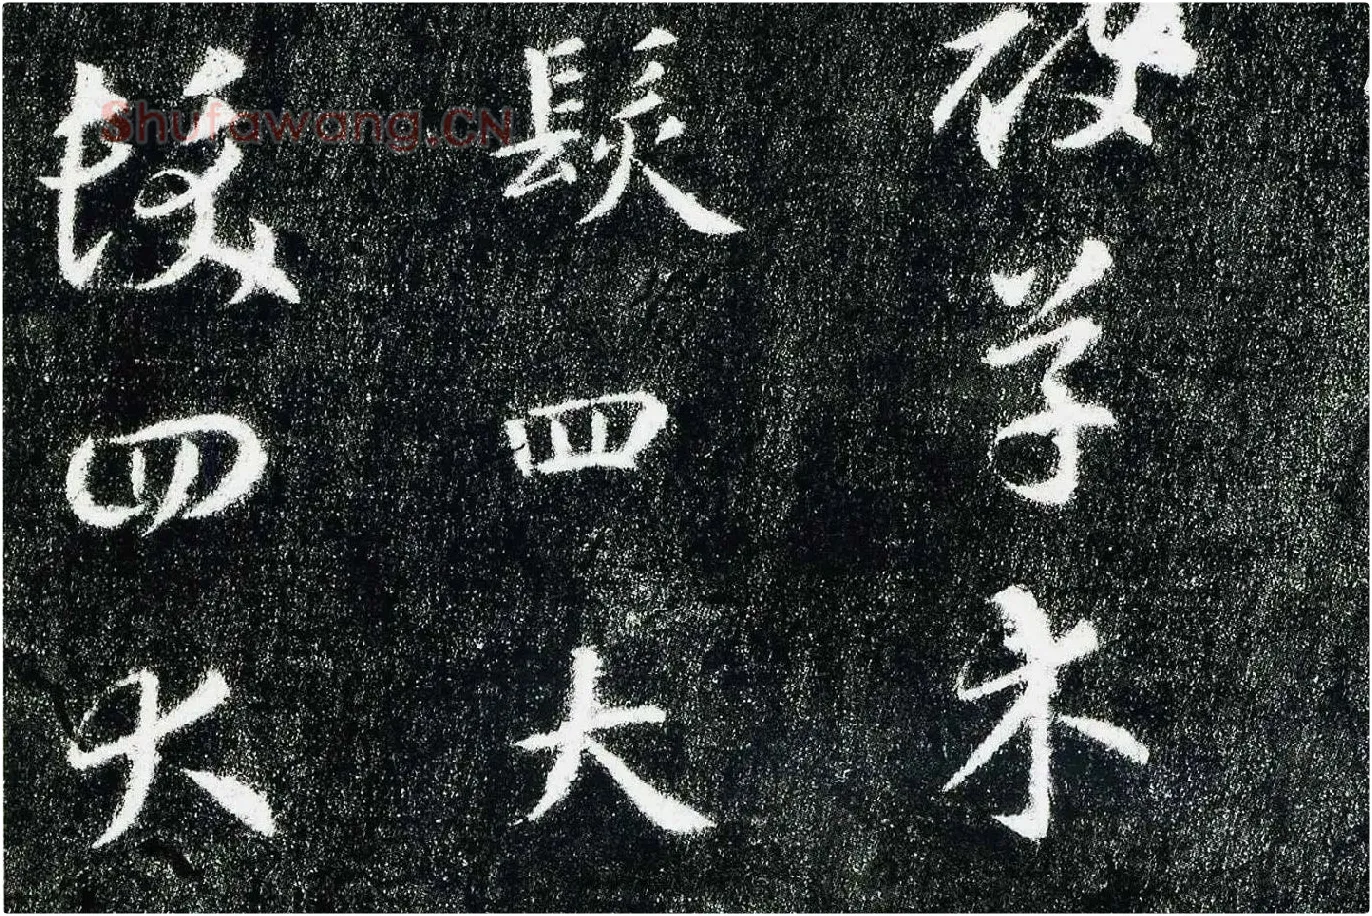 学朱
髮四大
髮四大
Shufawang.CN